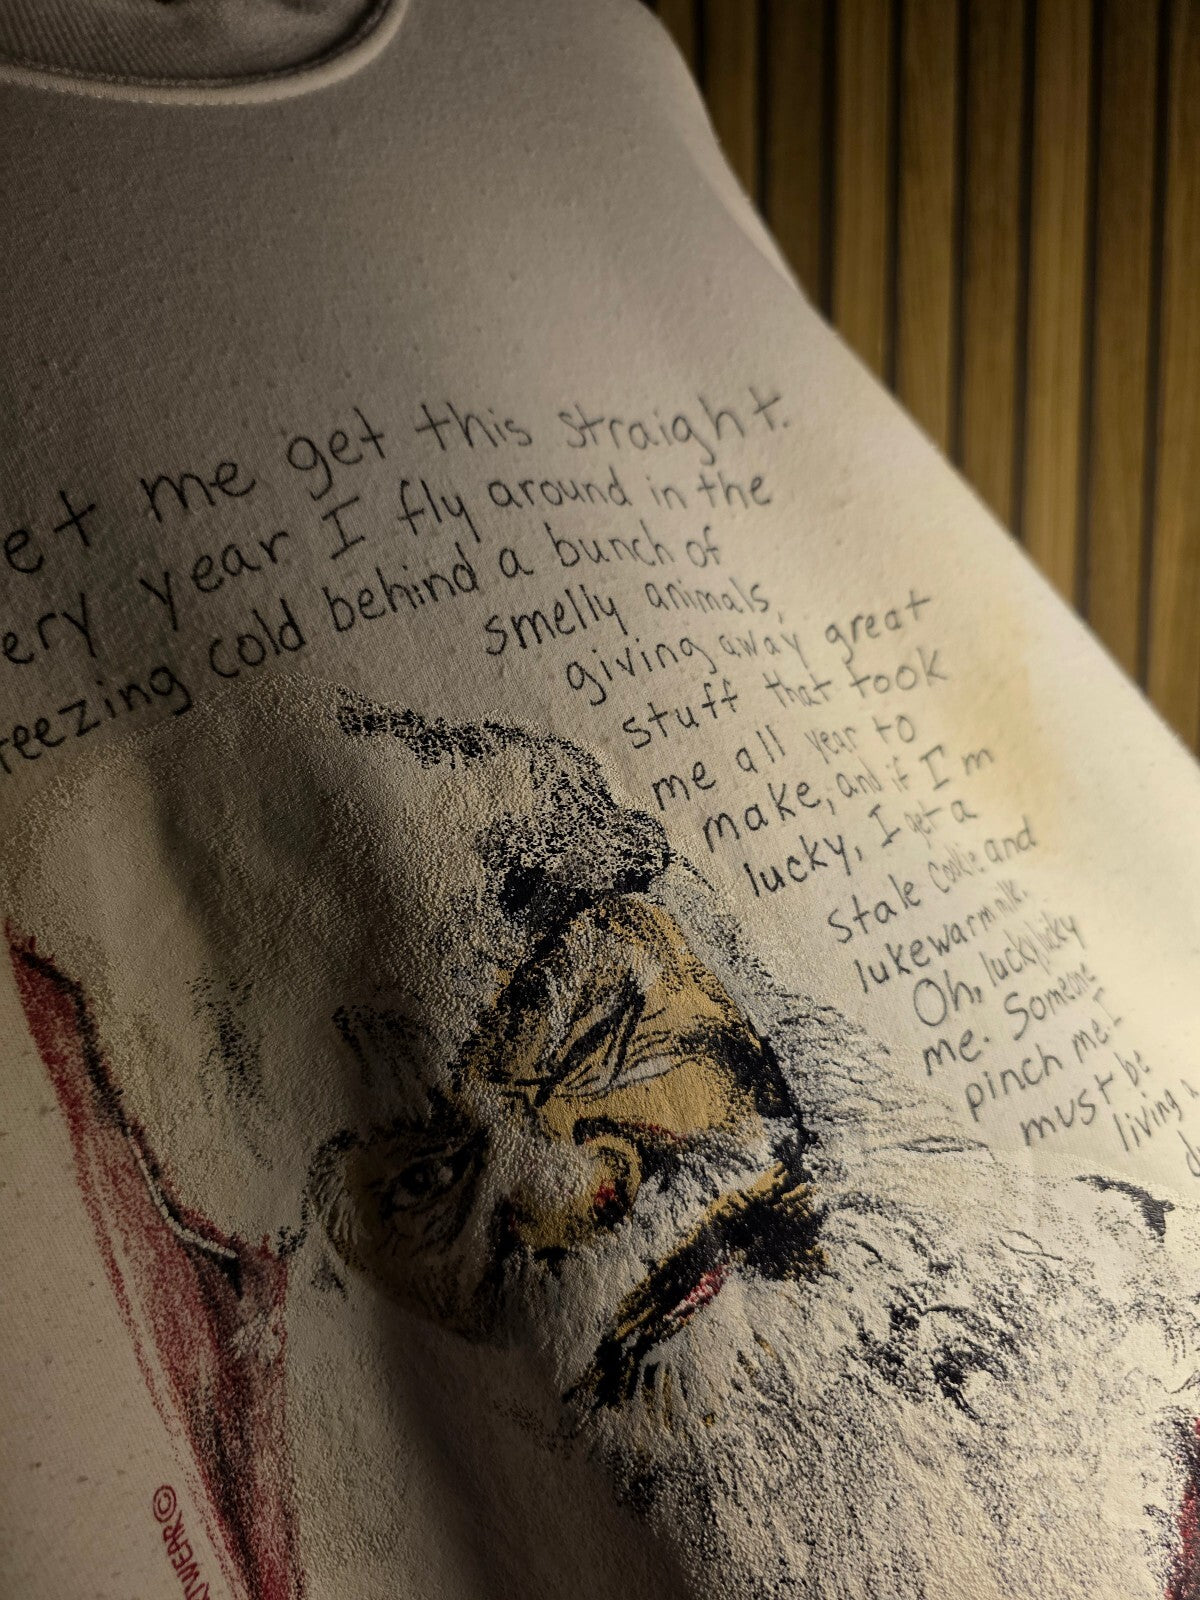 et me get this straight.
ery year I fly around in the
reezing cold behind a bunch of
smelly animals,
giving away great
stuff that took
me all year to
make, and if I'm
lucky, I get a
stale cookie and
lukewarm milk.
Oh, lucky lucky
me. Someone
pinch me I
must be
living
WERR©